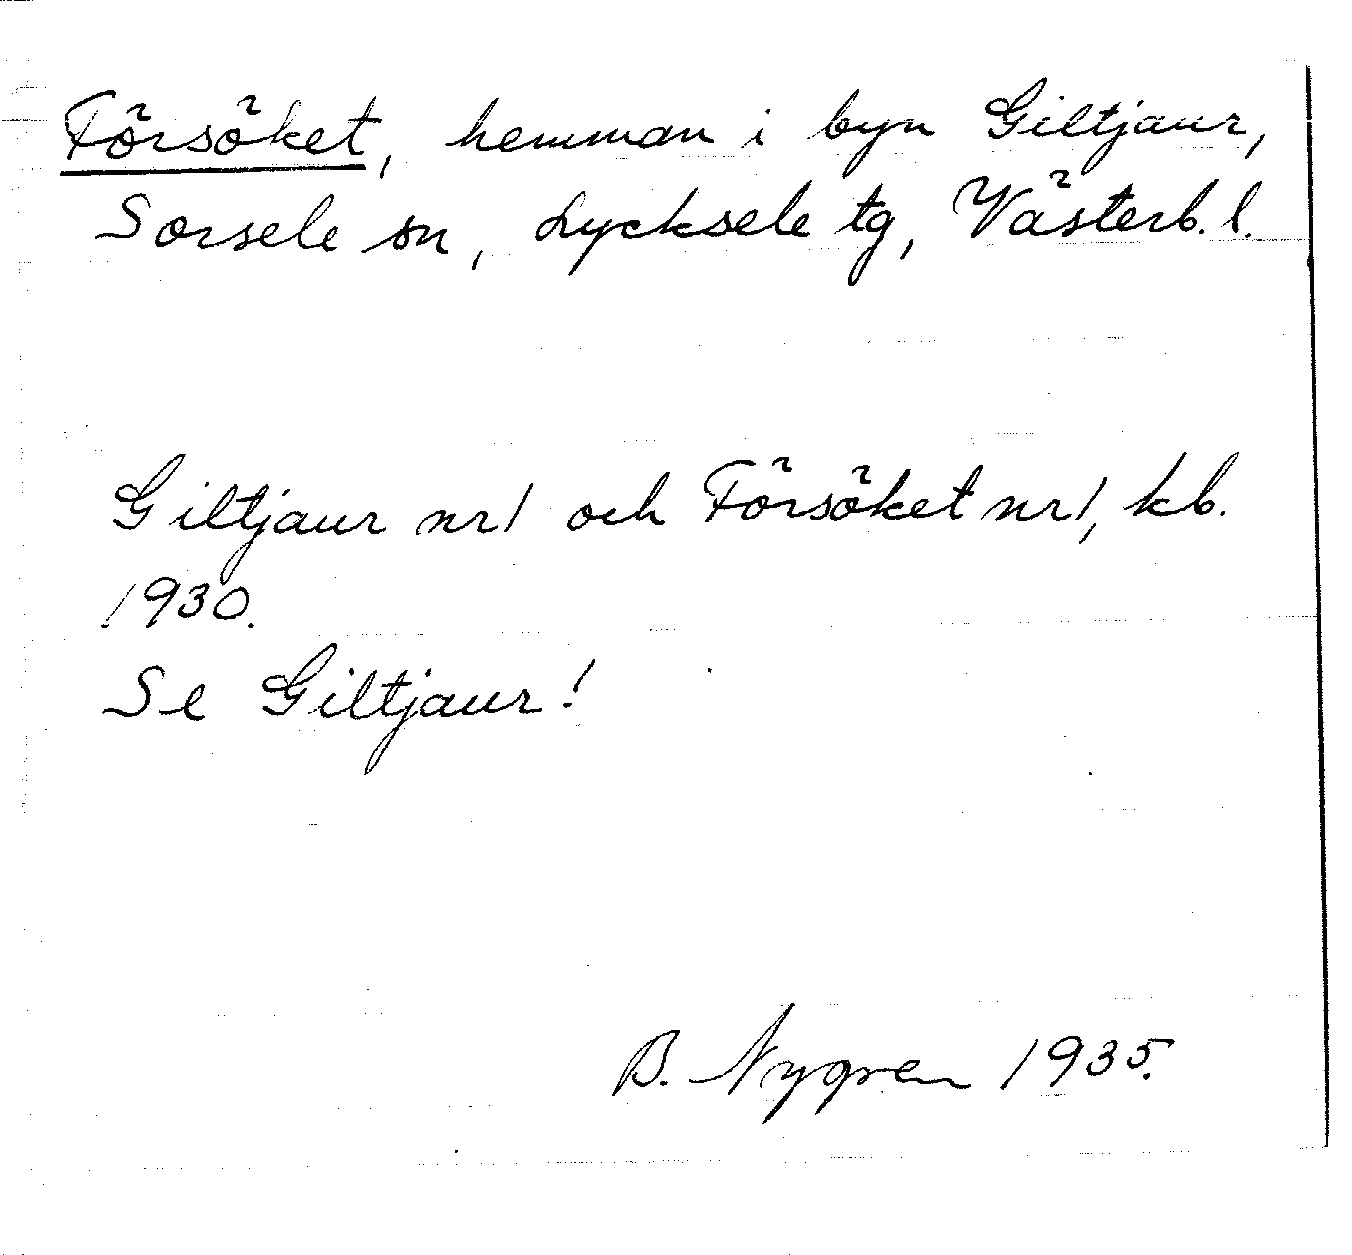 Försöket, hemman i byn Giltjaur,
Sorsele sn, Lycksele tg, Västerb. l.
Giltjaur nr 1 och Försöket nr 1, kb.
1930.
Se Giltjaur!
B. Nygren 1935.